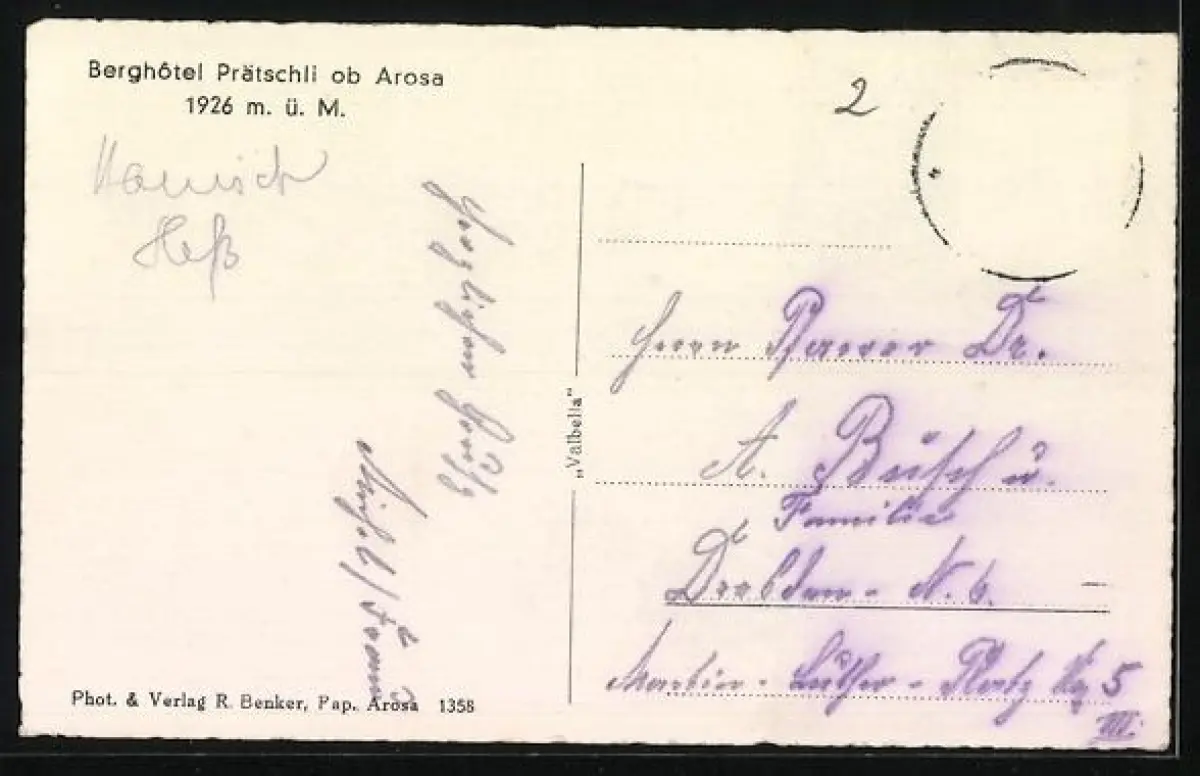 Berghôtel Prätschli ob Arosa
1926 m. ü. M.
Heß
2
Herzlichen Gruß
"Valbella"
Herrn Pfarrer Dr.
A. Busch u.
Familie
Dresden - N. 6. -
Martin - Luther - Platz No 5
III.
Phot. & Verlag R. Benker, Pap. Arosa 1358